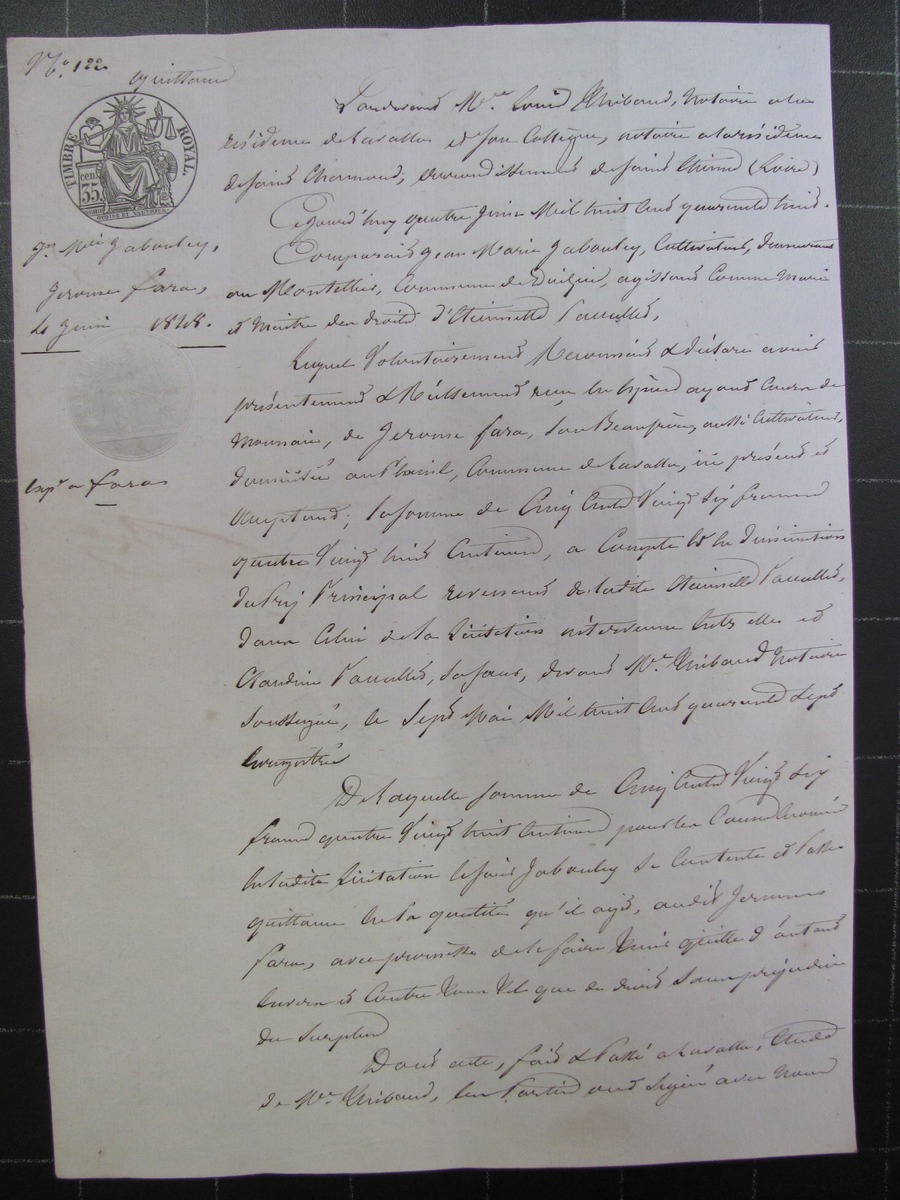 N.° 122
quittance
TIMBRE ROYAL.
35 cen
Jn Mie Jabouley,
Jerome fara,
4 Juin 1848.
Expn a fara
Pardevant Me Louis Thibaud, Notaire a la
résidence de Lavalla et son Collègue, notaire a la résidence
de saint Chamond, arrondissement de saint Etienne (Loire)
Cejourd'huy quatre Juin Mil huit Cent quarante huit.
Comparait Jean Marie Jabouley, Cultivateur, demeurant
au Montellier, Commune de, agissant Comme Marie
et Maitre des droits d'Etiennette
Lequel Volontairement Reconnait & déclare avoir
présentement & Réellement reçu En Espèces ayant Cours de
Monnaie, de Jerome fara, son Beaufrère, aussi Cultivateur,
domicilié au, Commune de Lavalla, ici présent et
acceptant; la somme de Cinq Cents Vingt Six francs
quatre Vingt huit Centimes, a Compte & En diminution
du Prix Principal revenant de ladite Etiennette
dans Celui de la Licitation intervenue Entr'elle et
Claudine, sa sœur, devant Me Thibaud Notaire
Soussigné, le Sept Mai Mil huit Cent quarante Sept
Enregistré
De Laquelle somme de Cinq Cents Vingt Six
francs quatre Vingt huit Centimes pour les Causes Enoncées
En ladite Licitation le sait Jabouley Se Contente et Passe
quittance En la qualité qu'il agit, audit Jerome
fara, avec promesse de le faire tenir quitte d'autant
Envers et Contre tous tel que de droit Sans préjudice
du Surplus
Dont acte, fait & Passé a Lavalla, Etude
de Me Thibaud, Les Parties ont Signé avec nous